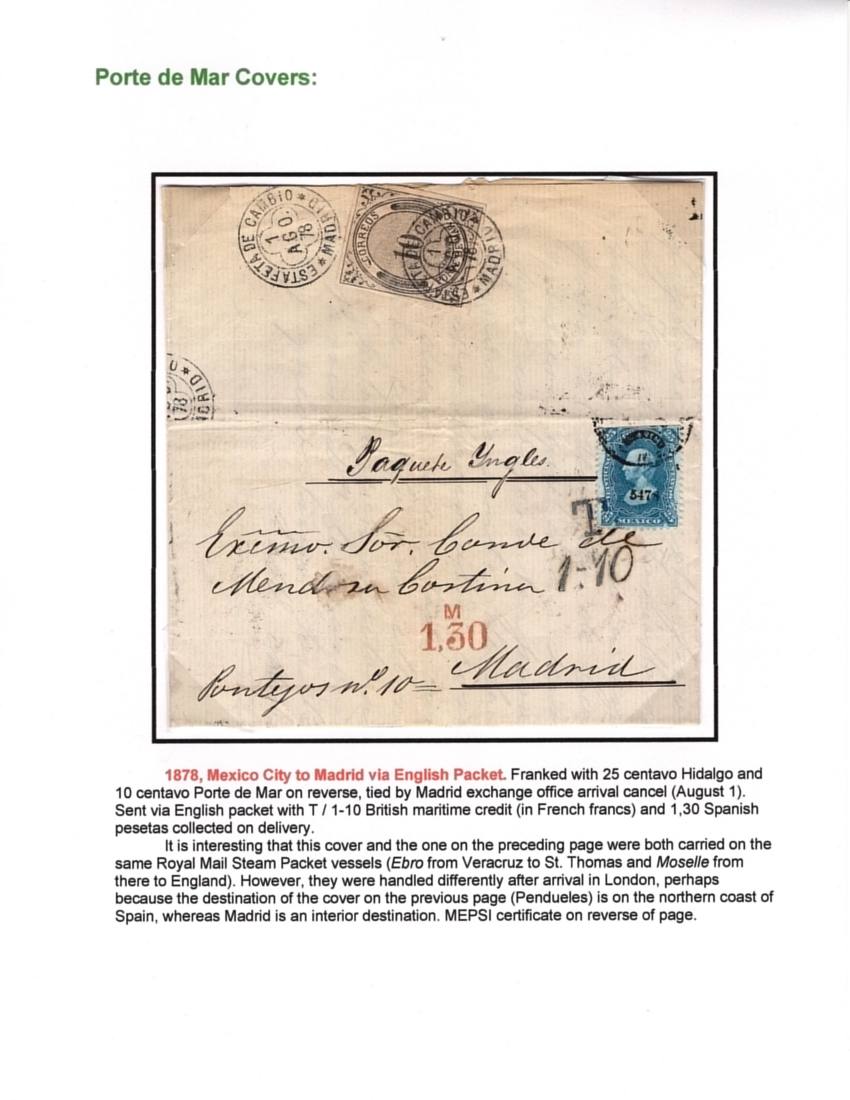 Porte de Mar Covers:
ESTAFETA DE CAMBIO * MADRID *
1
AGO
78
CORREOS
10
ESTAFETA DE CAMBIO * MADRID *
1
AGO
78
78
Paquete Yngles.
547
MEXICO
T
Exĩmo. Sõr. Conde de
Mendoza Cortina
1-10
M
1,30
Pontejos nº. 10 = Madrid
1878, Mexico City to Madrid via English Packet. Franked with 25 centavo Hidalgo and
10 centavo Porte de Mar on reverse, tied by Madrid exchange office arrival cancel (August 1).
Sent via English packet with T / 1-10 British maritime credit (in French francs) and 1,30 Spanish
pesetas collected on delivery.
It is interesting that this cover and the one on the preceding page were both carried on the
same Royal Mail Steam Packet vessels (Ebro from Veracruz to St. Thomas and Moselle from
there to England). However, they were handled differently after arrival in London, perhaps
because the destination of the cover on the previous page (Pendueles) is on the northern coast of
Spain, whereas Madrid is an interior destination. MEPSI certificate on reverse of page.